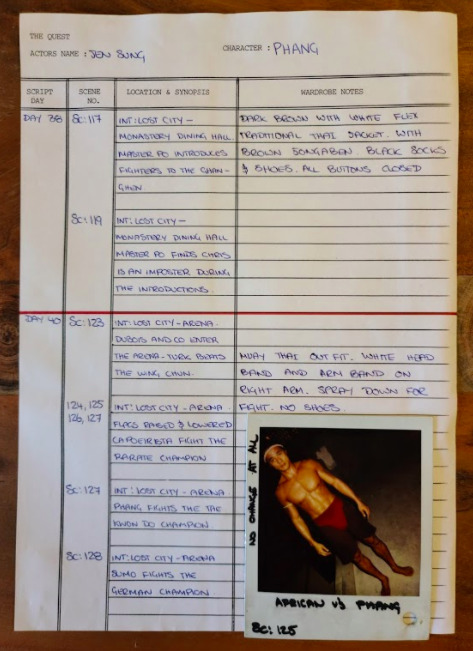 THE QUEST
ACTORS NAME : JEN SUNG
CHARACTER : PHANG
SCRIPT DAY
SCENE NO.
LOCATION & SYNOPSIS
WARDROBE NOTES
DAY 38
SC: 117
INT: LOST CITY -
MONASTERY DINING HALL
MASTER PO INTRODUCES
FIGHTERS TO THE GHAN-
GHEN.
DARK BROWN WITH WHITE FLEX
TRADITIONAL THAI JACKET. WITH
BROWN SONGABEN BLACK SOCKS
& SHOES. ALL BUTTONS CLOSED
SC: 119
INT: LOST CITY -
MONASTERY DINING HALL
MASTER PO FINDS CHRIS
IS AN IMPOSTER DURING
THE INTRODUCTIONS.
DAY 40
SC: 123
INT: LOST CITY - ARENA.
DUBOIS AND CO ENTER
THE ARENA - TURK BEATS
THE WING CHUN.
MUAY THAI OUTFIT. WHITE HEAD
BAND AND ARM BAND ON
RIGHT ARM. SPRAY DOWN FOR
FIGHT. NO SHOES.
124, 125
126, 127
INT: LOST CITY - ARENA.
FLAGS RAISED & LOWERED
CAPOEIRISTA FIGHT THE
KARATE CHAMPION
SC: 127
INT: LOST CITY - ARENA
PHANG FIGHTS THE TAE
KWON DO CHAMPION.
SC: 128
INT: LOST CITY - ARENA
SUMO FIGHTS THE
GERMAN CHAMPION.
NO CHANGE AT ALL
AFRICAN V's PHANG
SC: 125